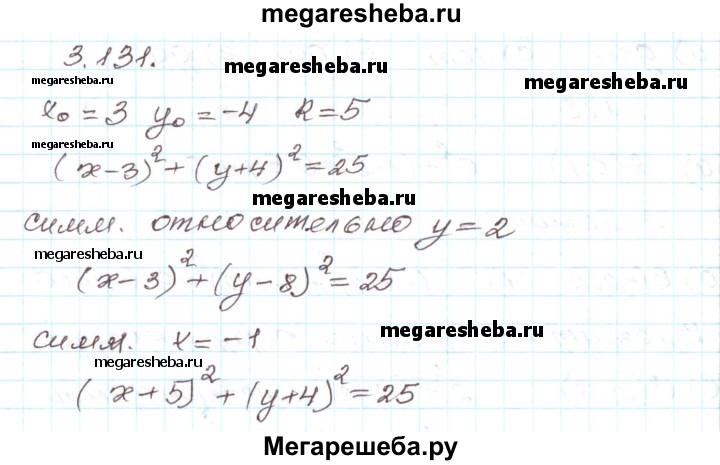 megaresheba.ru
3.131.
megaresheba.ru
megaresheba.ru
megaresheba.ru
x₀ = 3 y₀ = -4 R = 5
megaresheba.ru
(x-3)² + (y+4)² = 25
megaresheba.ru
симм. относительно y = 2
megaresheba.ru
(x-3)² + (y-8)² = 25
симм. x = -1
megaresheba.ru
megaresheba.ru
(x+5)² + (y+4)² = 25
Мегарешеба.ру